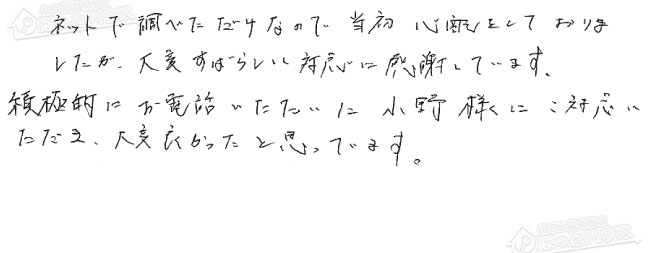 ネットで調べただけなので 当初 心配をしておりま
したが、大変すばらしい対応に感謝しています。
積極的にお電話いただいた小野様にご対応い
ただき、大変良かったと思っています。